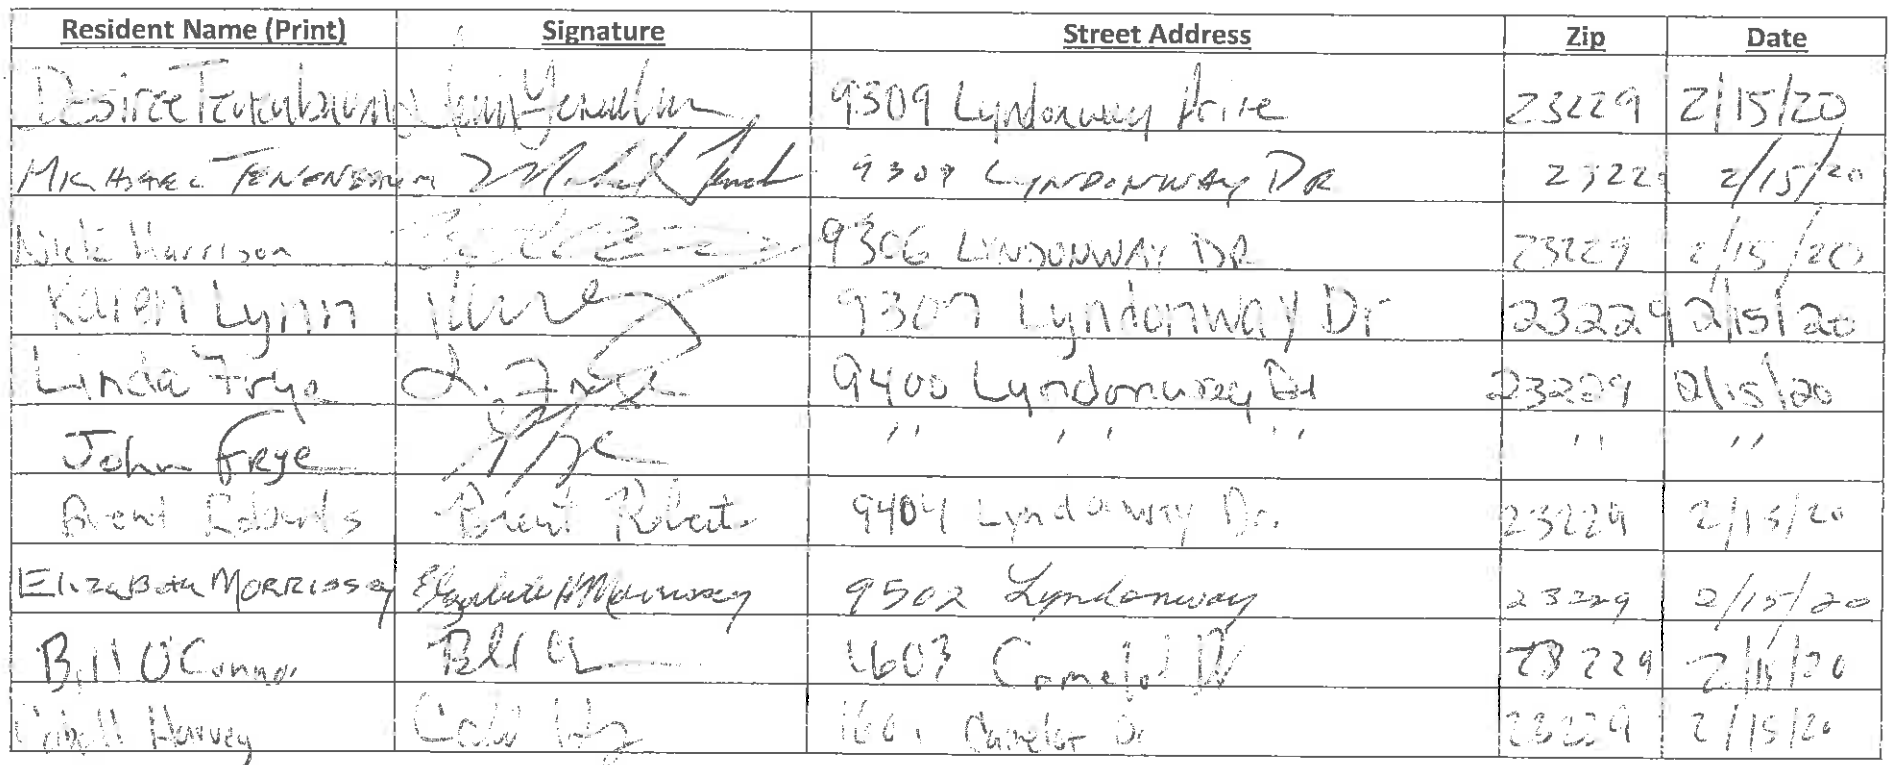 Resident Name (Print) Signature Street Address Zip Date
Desiree Tenenbaum 9309 Lyndonway Drive 23229 2/15/20
Michael Tenenbaum 9309 Lyndonway DR 2322 2/15/20
Nick Harrison 9306 LYNDONWAY DR 23229 2/15/20
Karen Lynn 9307 Lyndonway Dr 23229 2/15/20
Linda Frye L. Frye 9400 Lyndonway 23229 2/15/20
John Frye " " " " " "
Brent Roberts Brent Roberts 9404 Lyndonway Dr. 23229 2/15/20
Elizabeth Morrissey Elizabeth H Morrissey 9502 Lyndonway 23229 2/15/20
Bill O'Connor 1603 Camelot Dr 23229 2/15/20
Cabell Harvey Camelot Dr 23229 2/15/20